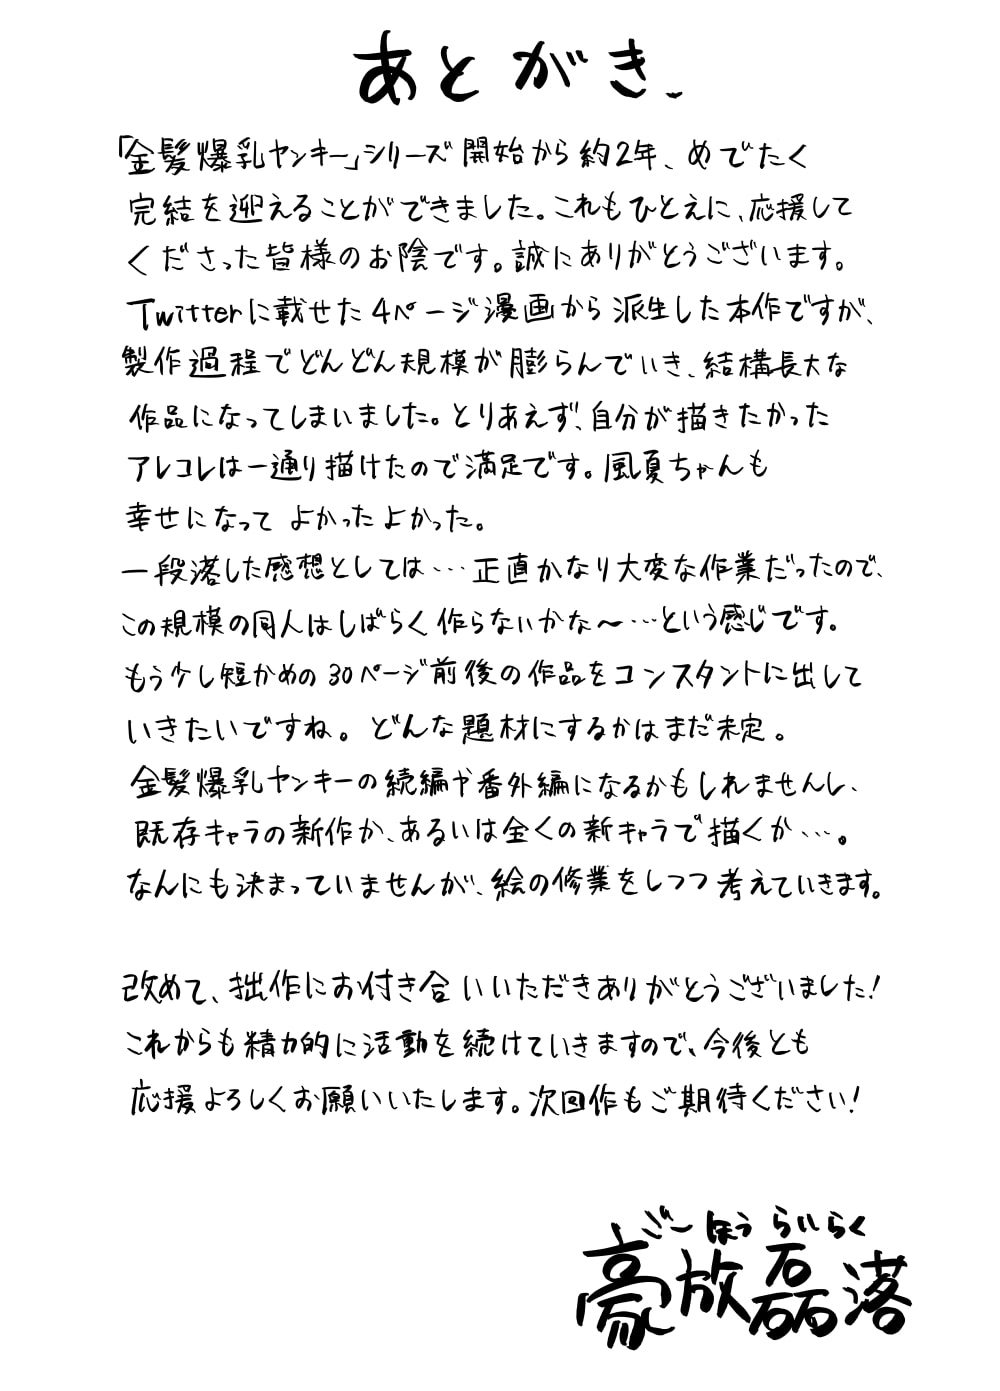 あとがき
「金髪爆乳ヤンキー」シリーズ開始から約2年、めでたく
完結を迎えることができました。これもひとえに、応援して
くださった皆様のお陰です。誠にありがとうございます。
Twitterに載せた4ページ漫画から派生した本作ですが、
製作過程でどんどん規模が膨らんでいき、結構長大な
作品になってしまいました。とりあえず、自分が描きたかった
アレコレは一通り描けたので満足です。風夏ちゃんも
幸せになって よかったよかった。
一段落した感想としては…正直かなり大変な作業だったので、
この規模の同人はしばらく作らないかな〜…という感じです。
もう少し短かめの30ページ前後の作品をコンスタントに出して
いきたいですね。どんな題材にするかはまだ未定。
金髪爆乳ヤンキーの続編や番外編になるかもしれませんし、
既存キャラの新作か、あるいは全くの新キャラで描くか…。
なんにも決まっていませんが、絵の修業をしつつ考えていきます。
改めて、拙作にお付き合いいただきありがとうございました!
これからも精力的に活動を続けていきますので、今後とも
応援よろしくお願いいたします。次回作もご期待ください!
ごーほうらいらく
豪放磊落